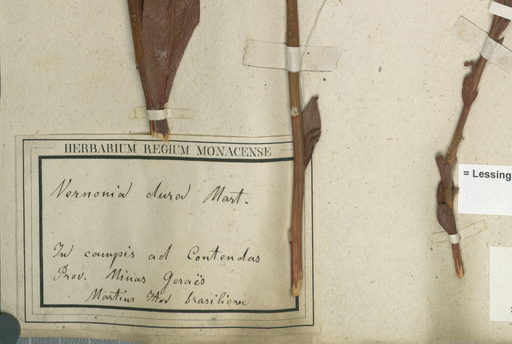 HERBARIUM REGIUM MONACENSE.
Vernonia dura Mart.
In campis ad Contendas
Prov. Minas Geraës
Martius Iter brasiliense
= Lessing